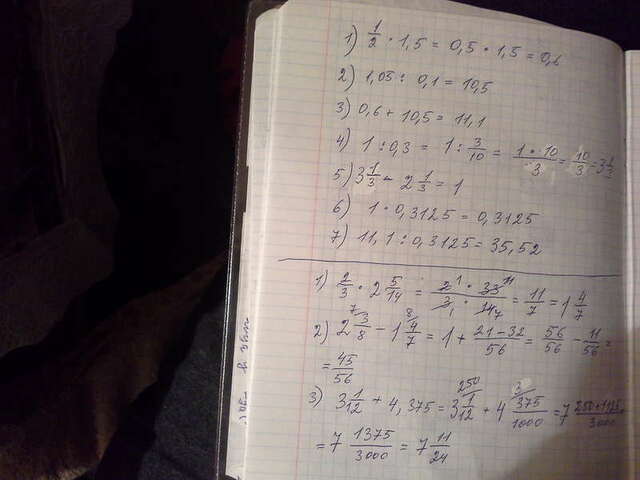 1) 1/2 · 1,5 = 0,5 · 1,5 = 0,6
2) 1,05 : 0,1 = 10,5
3) 0,6 + 10,5 = 11,1
4) 1 : 0,3 = 1 : 3/10 = 1 · 10/3 = 10/3 = 3 1/3
5) 3 1/3 - 2 1/3 = 1
6) 1 · 0,3125 = 0,3125
7) 11,1 : 0,3125 = 35,52
1) 2/3 · 2 5/14 = 2 1 · 33 11 / 3 1 · 14 7 = 11/7 = 1 4/7
2) 2 3/8 7 - 1 4/7 8 = 1 + 21-32/56 = 56/56 - 11/56 =
= 45/56
3) 3 1/12 + 4,375 = 3 1/12 250 + 4 375/1000 3 = 7 250+1125/3000 =
= 7 1375/3000 = 7 11/24